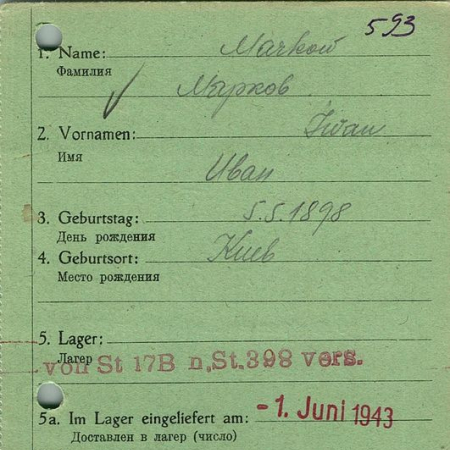 593
1. Name: Markow
Фамилия
Марков
2. Vornamen: Iwan
Имя
Иван
3. Geburtstag: 5.5.1898
День рождения
4. Geburtsort: Киев
Место рождения
5. Lager:
Лагер
von St 17B n. St. 398 vers.
5a. Im Lager eingeliefert am: - 1. Juni 1943
Доставлен в лагер (число)